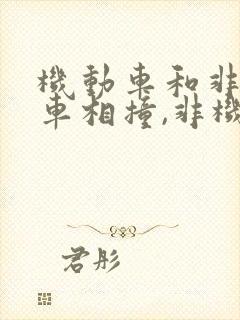 機動車和非
車相撞,非機
君彤